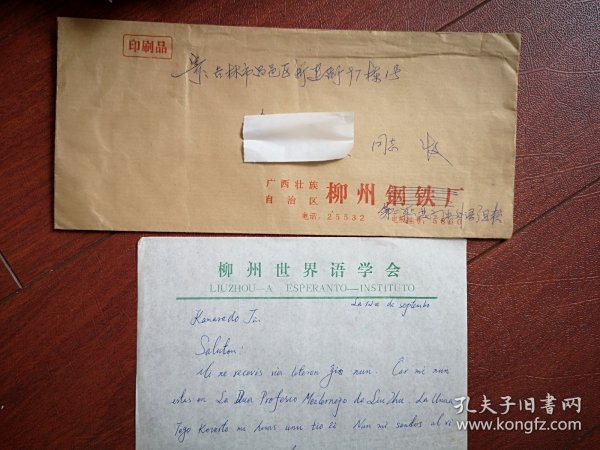 印刷品
寄：吉林市昌邑区新建街97栋1号
同志 收
广西壮族
自治区
柳州钢铁厂
电话：25532
柳州世界语学会
LIUZHOU—A ESPERANTO—INSTITUTO
La de septembo
Kamarado Ia.
Saluton!
Mi ne recevis vian leteron ĝis nun. Car mi nun
estas en La Dua Profesio Mezlernejo de LiuZhu. La
Tago mi havas unu Nun mi sendas al vi
孔夫子旧书网
www.kongfz.com